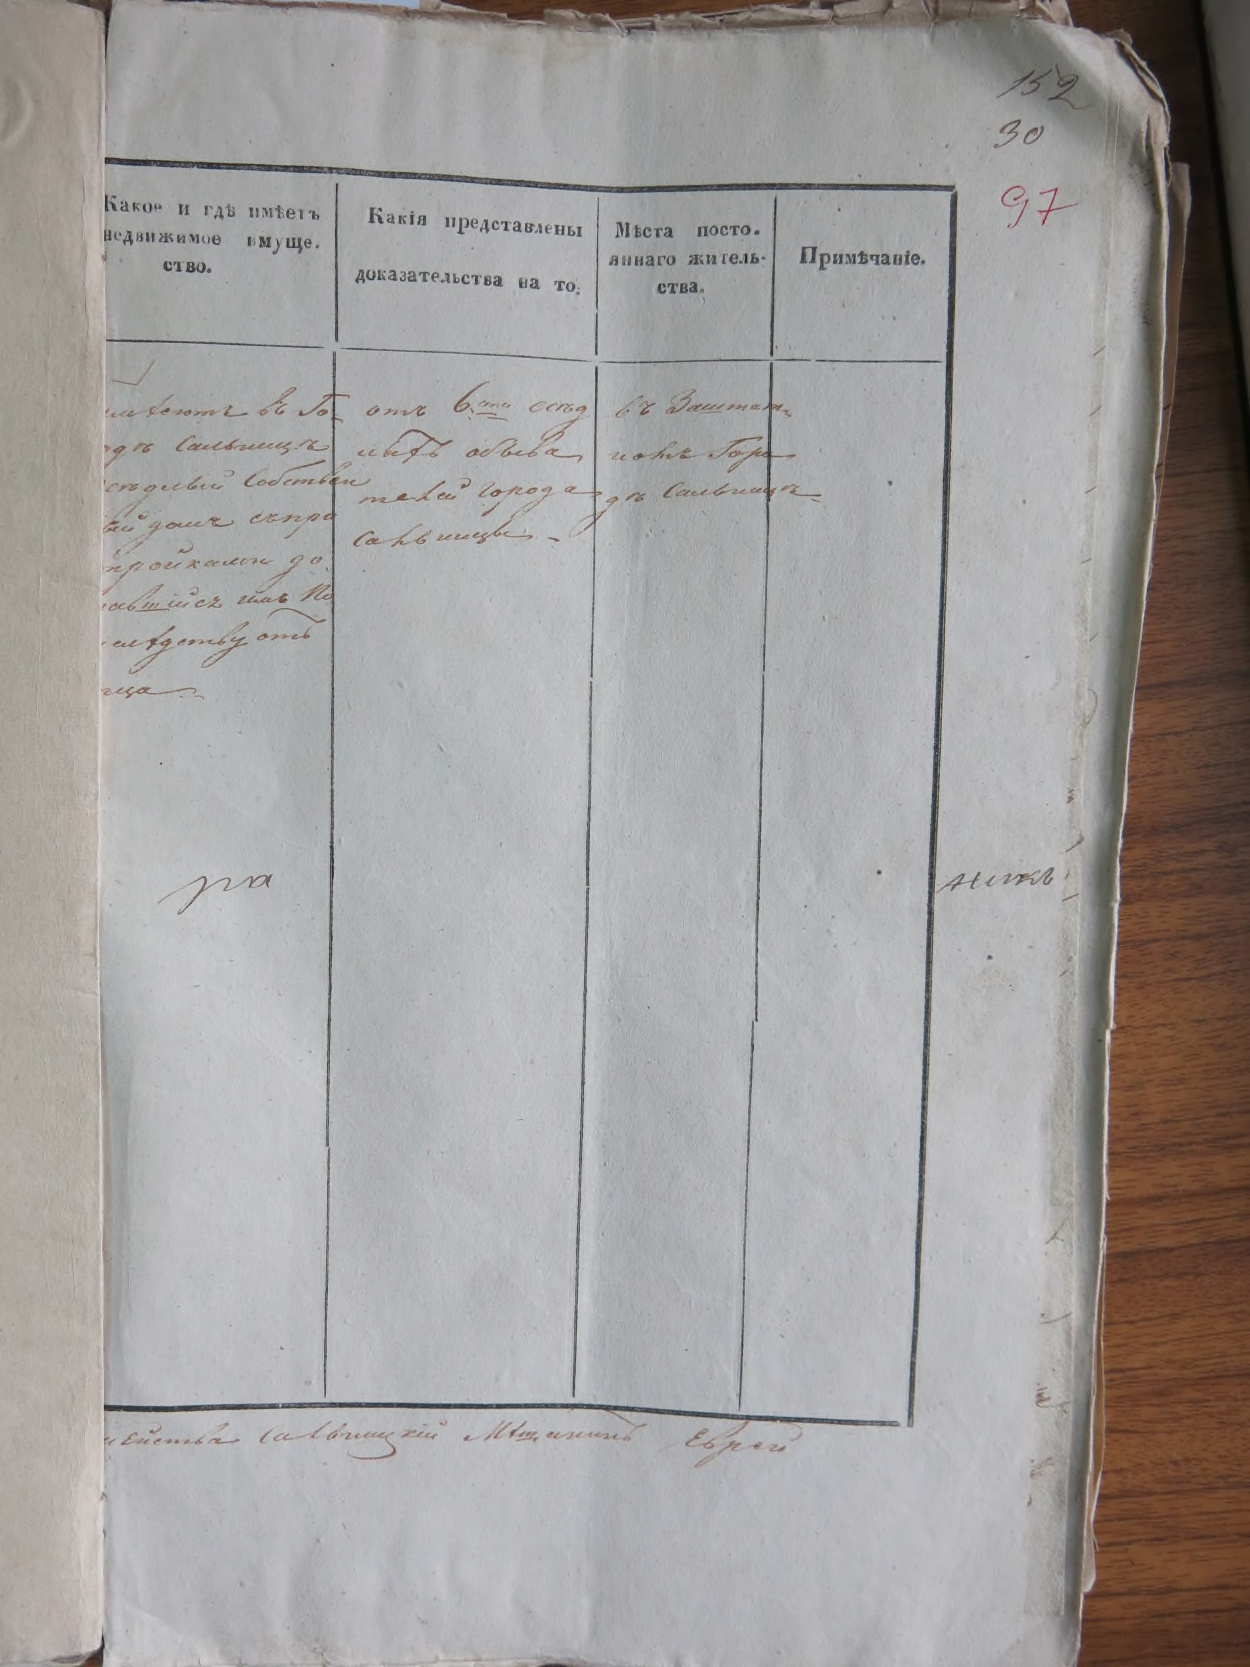 152
30
97
Какое и гдѣ имѣетъ
недвижимое имуще.
ство.
Какія представлены
доказательства на то.
Мѣста посто.
яннаго житель-
ства.
Примѣчаніе.
имѣютъ въ Го-
родѣ Сальницѣ
осѣдлый Собствен
ный домъ съпри
стройками до
ставшійсь имъ По
слѣдству отъ
отца
отъ 6ти осѣд
лыхъ обыва
телей Города
Сальницы
въ Заштат-
номъ Горо
дѣ Сальницѣ
ра
никъ
мейства Сальницкій Мѣщанинъ Еврей